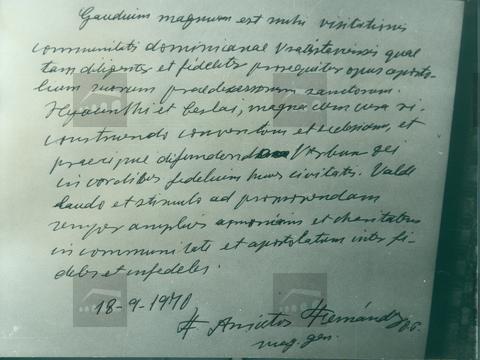 Gaudium magnum est mihi visitationis
communitatis dominicanae Vratislaviensis quae
tam diligenter et fideliter prosequitur opus aposto-
licum suorum praedecessorum sanctorum.
Hyacinthi et Ceslai, magna cum cura re-
construendo conventum et ecclesiam, et
praecipue difundendo Verbum Dei
in cordibus fidelium huius civitatis. Valde
laudo et stimulo ad promovendam
semper amplius armoniam et charitatem
in communitate et apostolatum inter fi-
deles et infideles.
18-9-1970,
Fr. Aniceto Fernández O.P.
mag. gen.